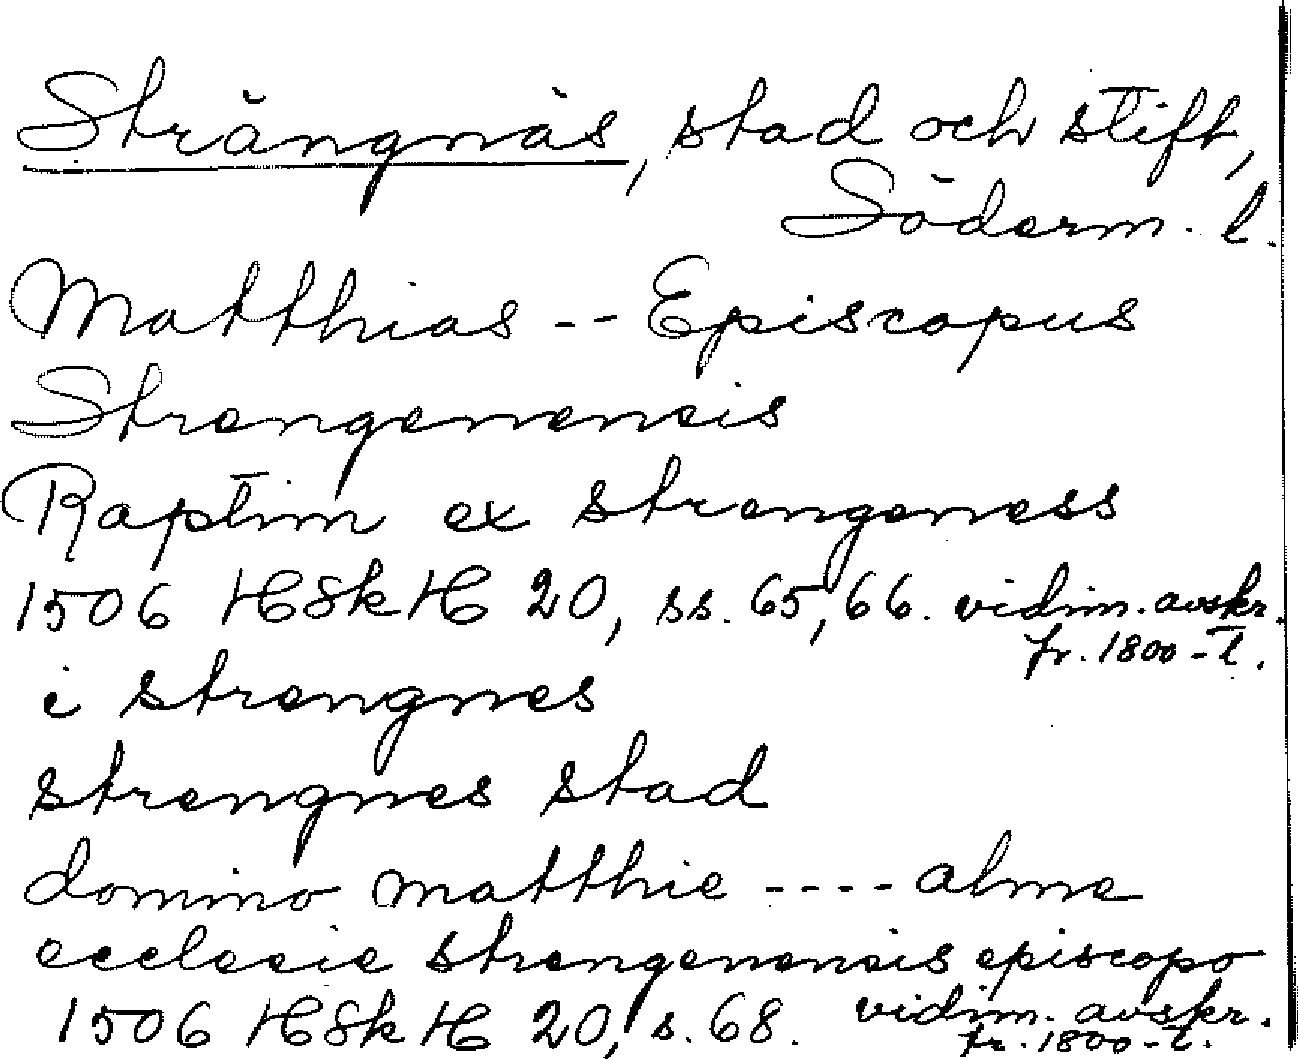 Strängnäs, stad och stift,
Söderm. l.
Matthias -- Episcopus
Strengenensis
Raptim ex strengeness
1506 HSkH 20, ss. 65, 66. vidim. avskr.
fr. 1800-t.
i strengnes
strengnes stad
domino matthie ---- alme
ecclesie strengenensis episcopo
1506 HSkH 20, s. 68. vidim. avskr.
fr. 1800-t.